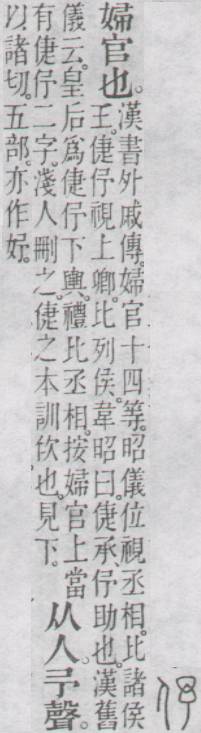 伃
婦官也。
漢書外戚傳。婦官十四等。昭儀位視丞相。比諸侯
王。倢伃視上卿。比列侯。韋昭曰。倢承。伃助也。漢舊
儀云。皇后爲倢伃下輿。禮比丞相。按婦官上當
有倢伃二字。淺人刪之。倢之本訓佽也。見下。
从人。予聲。
以諸切。五部。亦作妤。